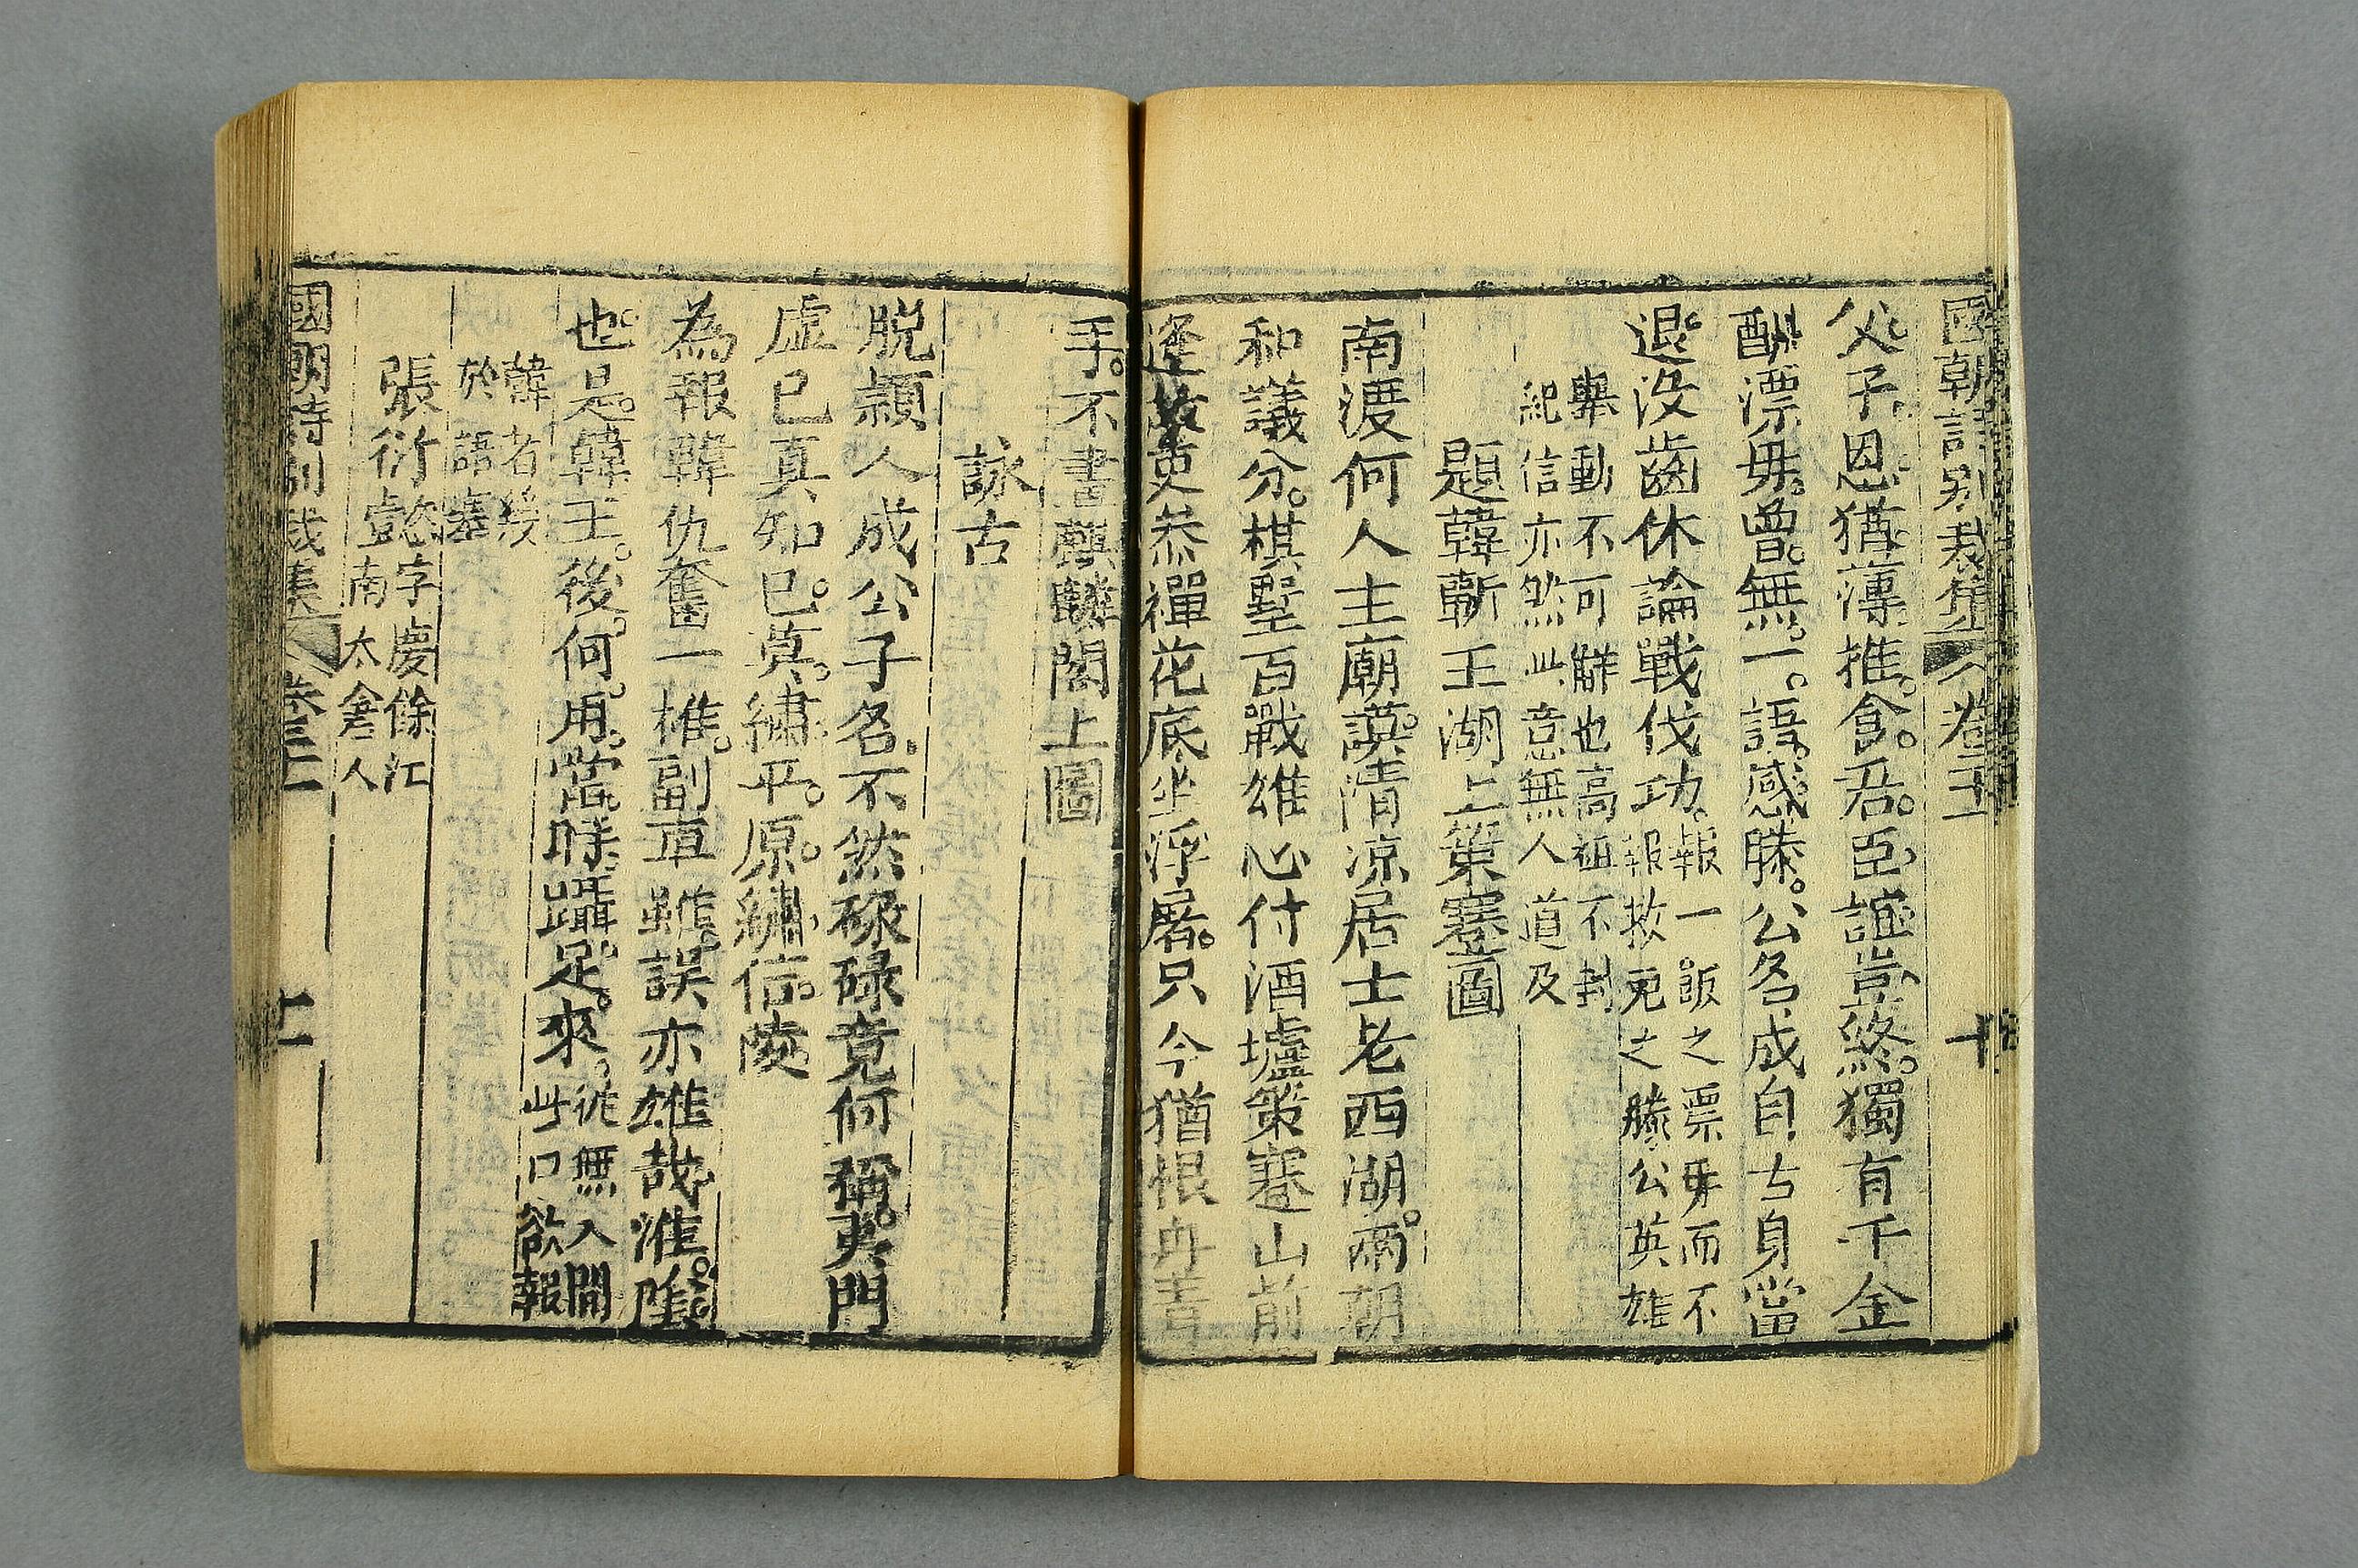 國朝詩別裁集 卷三 十
父子恩猶薄推食君臣誼豈終獨有千金
酬漂母曾無一語感滕公名成自古身當
退沒齒休論戰伐功報一飯之漂母而不
報救死之滕公英雄
舉動不可解也高祖不封
紀信亦然此意無人道及
題韓蘄王湖上策蹇圖
南渡何人主廟謨清涼居士老西湖兩朝
和議分棋墅百戰雄心付酒壚策蹇山前
逢故吏叅禪花底坐浮屠只今猶恨丹青
手不畫麒麟閣上圖
詠古
脫穎人成公子名不然碌碌竟何稱夷門
虛已真知已莫繡平原繡信陵
為報韓仇奮一椎副車雖誤亦雄哉淮陰
也是韓王後何用當時躡足來從無人間
此口欲報
韓者殺
於語塞
張衍懿字慶餘江
南太倉人
國朝詩別裁集 卷三 十一